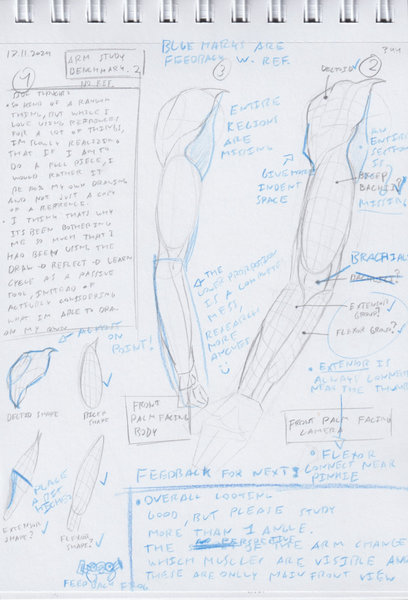 BLUE MARKS ARE
FEEDBACK W. REF.
17.11.2024
ARM STUDY
BENCHMARK. 2
NO REF.
SO KIND OF A RANDOM
THING, BUT WHILE I
LOVE USING REFERENCES
FOR A LOT OF THINGS,
I'M REALLY REALIZING
THAT IF I AM TO
DO A FULL PIECE, I
WOULD RATHER IT
BE MY OWN DRAWING
AND NOT JUST A COPY
OF A REFERENCE.
I THINK THATS WHY
ITS BEEN BOTHERING
ME SO MUCH THAT I
HAD BEEN USING THE
DRAW → REFLECT → LEARN
CYCLE AS A PASSIVE
TOOL, INSTEAD OF
ACTIVELY CONSIDERING
WHAT I'M ABLE TO DRAW
ON MY OWN
ALMOST ON
POINT!
DELTOID SHAPE
BICEP
SHAPE
PLACE
A BIT
HIGHER
EXTENSOR
SHAPE?
FLEXOR
SHAPE?
FEEDBACK FROG
3
ENTIRE
REGIONS
ARE
MISSING
THE
LOWER PROPORTION
IS A COMPLETE
MESS,
RESEARCH
MORE
ANGLES
FRONT
PALM FACING
BODY
2
DELTOID
GIVE MORE
INDENT
SPACE
AN
ENTIRE
SECTION
IS
MISSING
BICEP
BRACHIALIS
EXTENSOR
GROUP?
FLEXOR GROUP?
EXTENSOR IS
ALWAYS CONNECTED
NEAR THE THUMB
FRONT PALM FACING
CAMERA
FLEXOR
CONNECT NEAR
PINKIE
FEEDBACK FOR NEXT:
OVERALL LOOKING
GOOD, BUT PLEASE STUDY
MORE THAN 1 ANGLE.
THE PERSPECTIVE OF THE ARM CHANGE
WHICH MUSCLES ARE VISIBLE AND
THESE ARE ONLLY MAIN FRONT VIEW